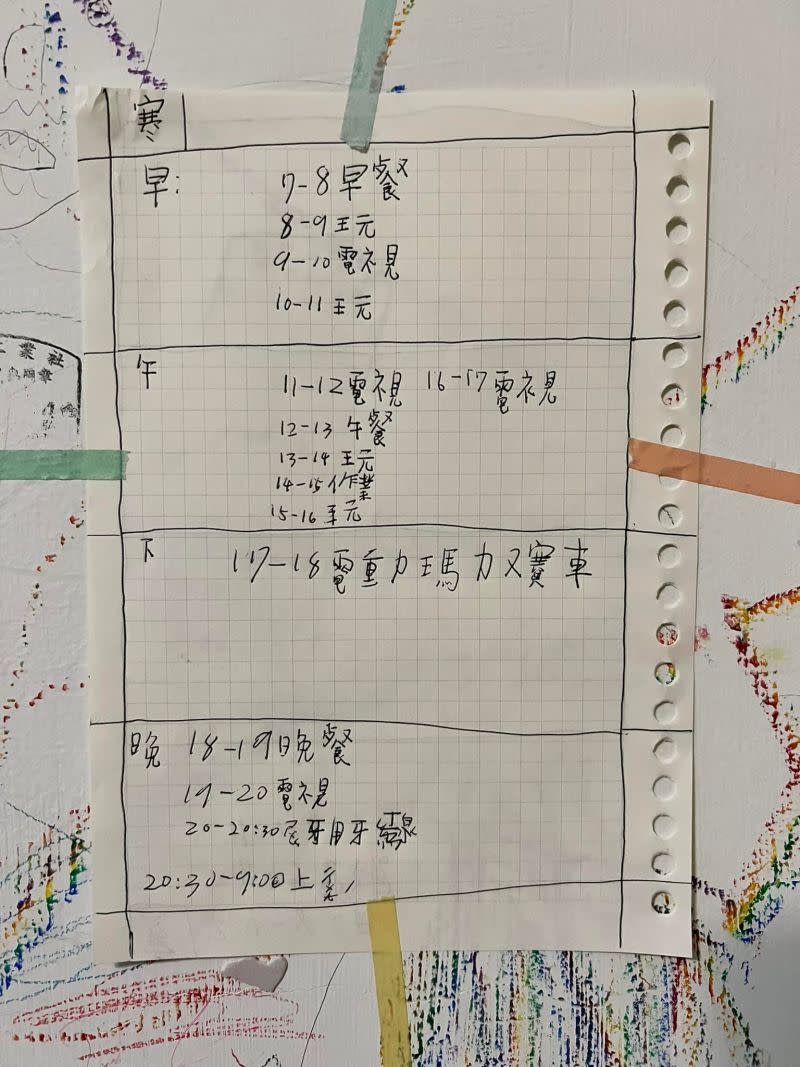 寒
早: 7-8早餐
8-9王元
9-10電視
10-11王元
午
11-12電視 16-17電視
12-13 午餐
13-14 王元
14-15作業
15-16 王元
下 17-18電重力瑪力又賽車
晚 18-19晚餐
19-20電視
20-20:30 牙用牙線
20:30-9:00上
業社